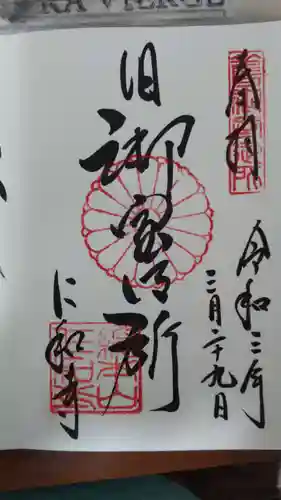 RA VIERGE
奉拝
令和三年
三月二十九日
旧御室御所
仁和寺